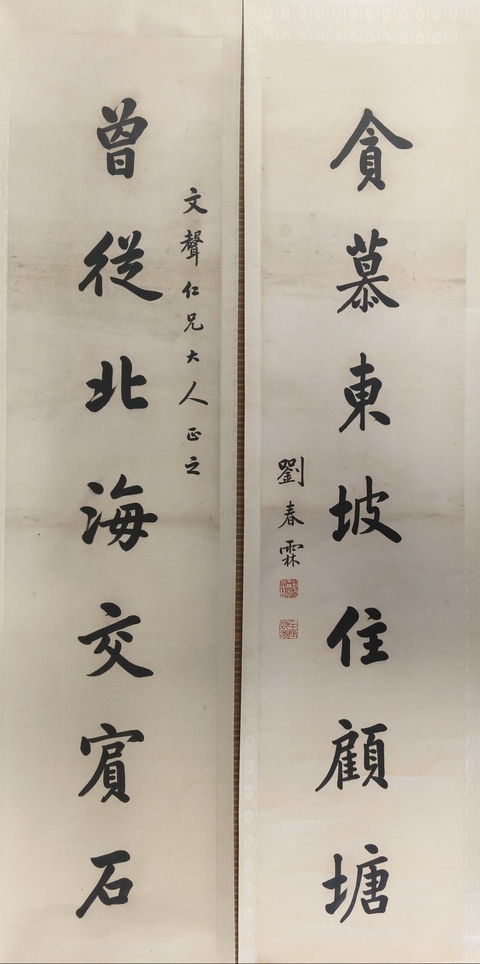 文聲仁兄大人正之
曾從北海交賔石
貪慕東坡住顧塘
劉春霖